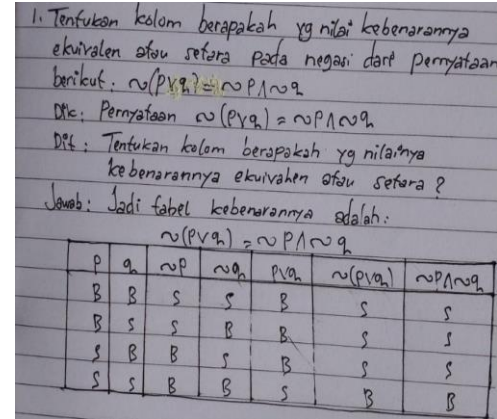 1. Tentukan kolom berapakah yg nilai kebenarannya
ekuivalen atau setara pada negasi dari pernyataan
berikut: ~(p∨q) = ~p∧~q
Dik: Pernyataan ~(p∨q) = ~p∧~q
Dit: Tentukan kolom berapakah yg nilainya
kebenarannya ekuivalen atau setara?
Jawab: Jadi tabel kebenarannya adalah:
~(p∨q) = ~p∧~q
p q ~p ~q p∨q ~(p∨q) ~p∧~q
B B S S B S S
B S S B B S S
S B B S B S S
S S B B S B B